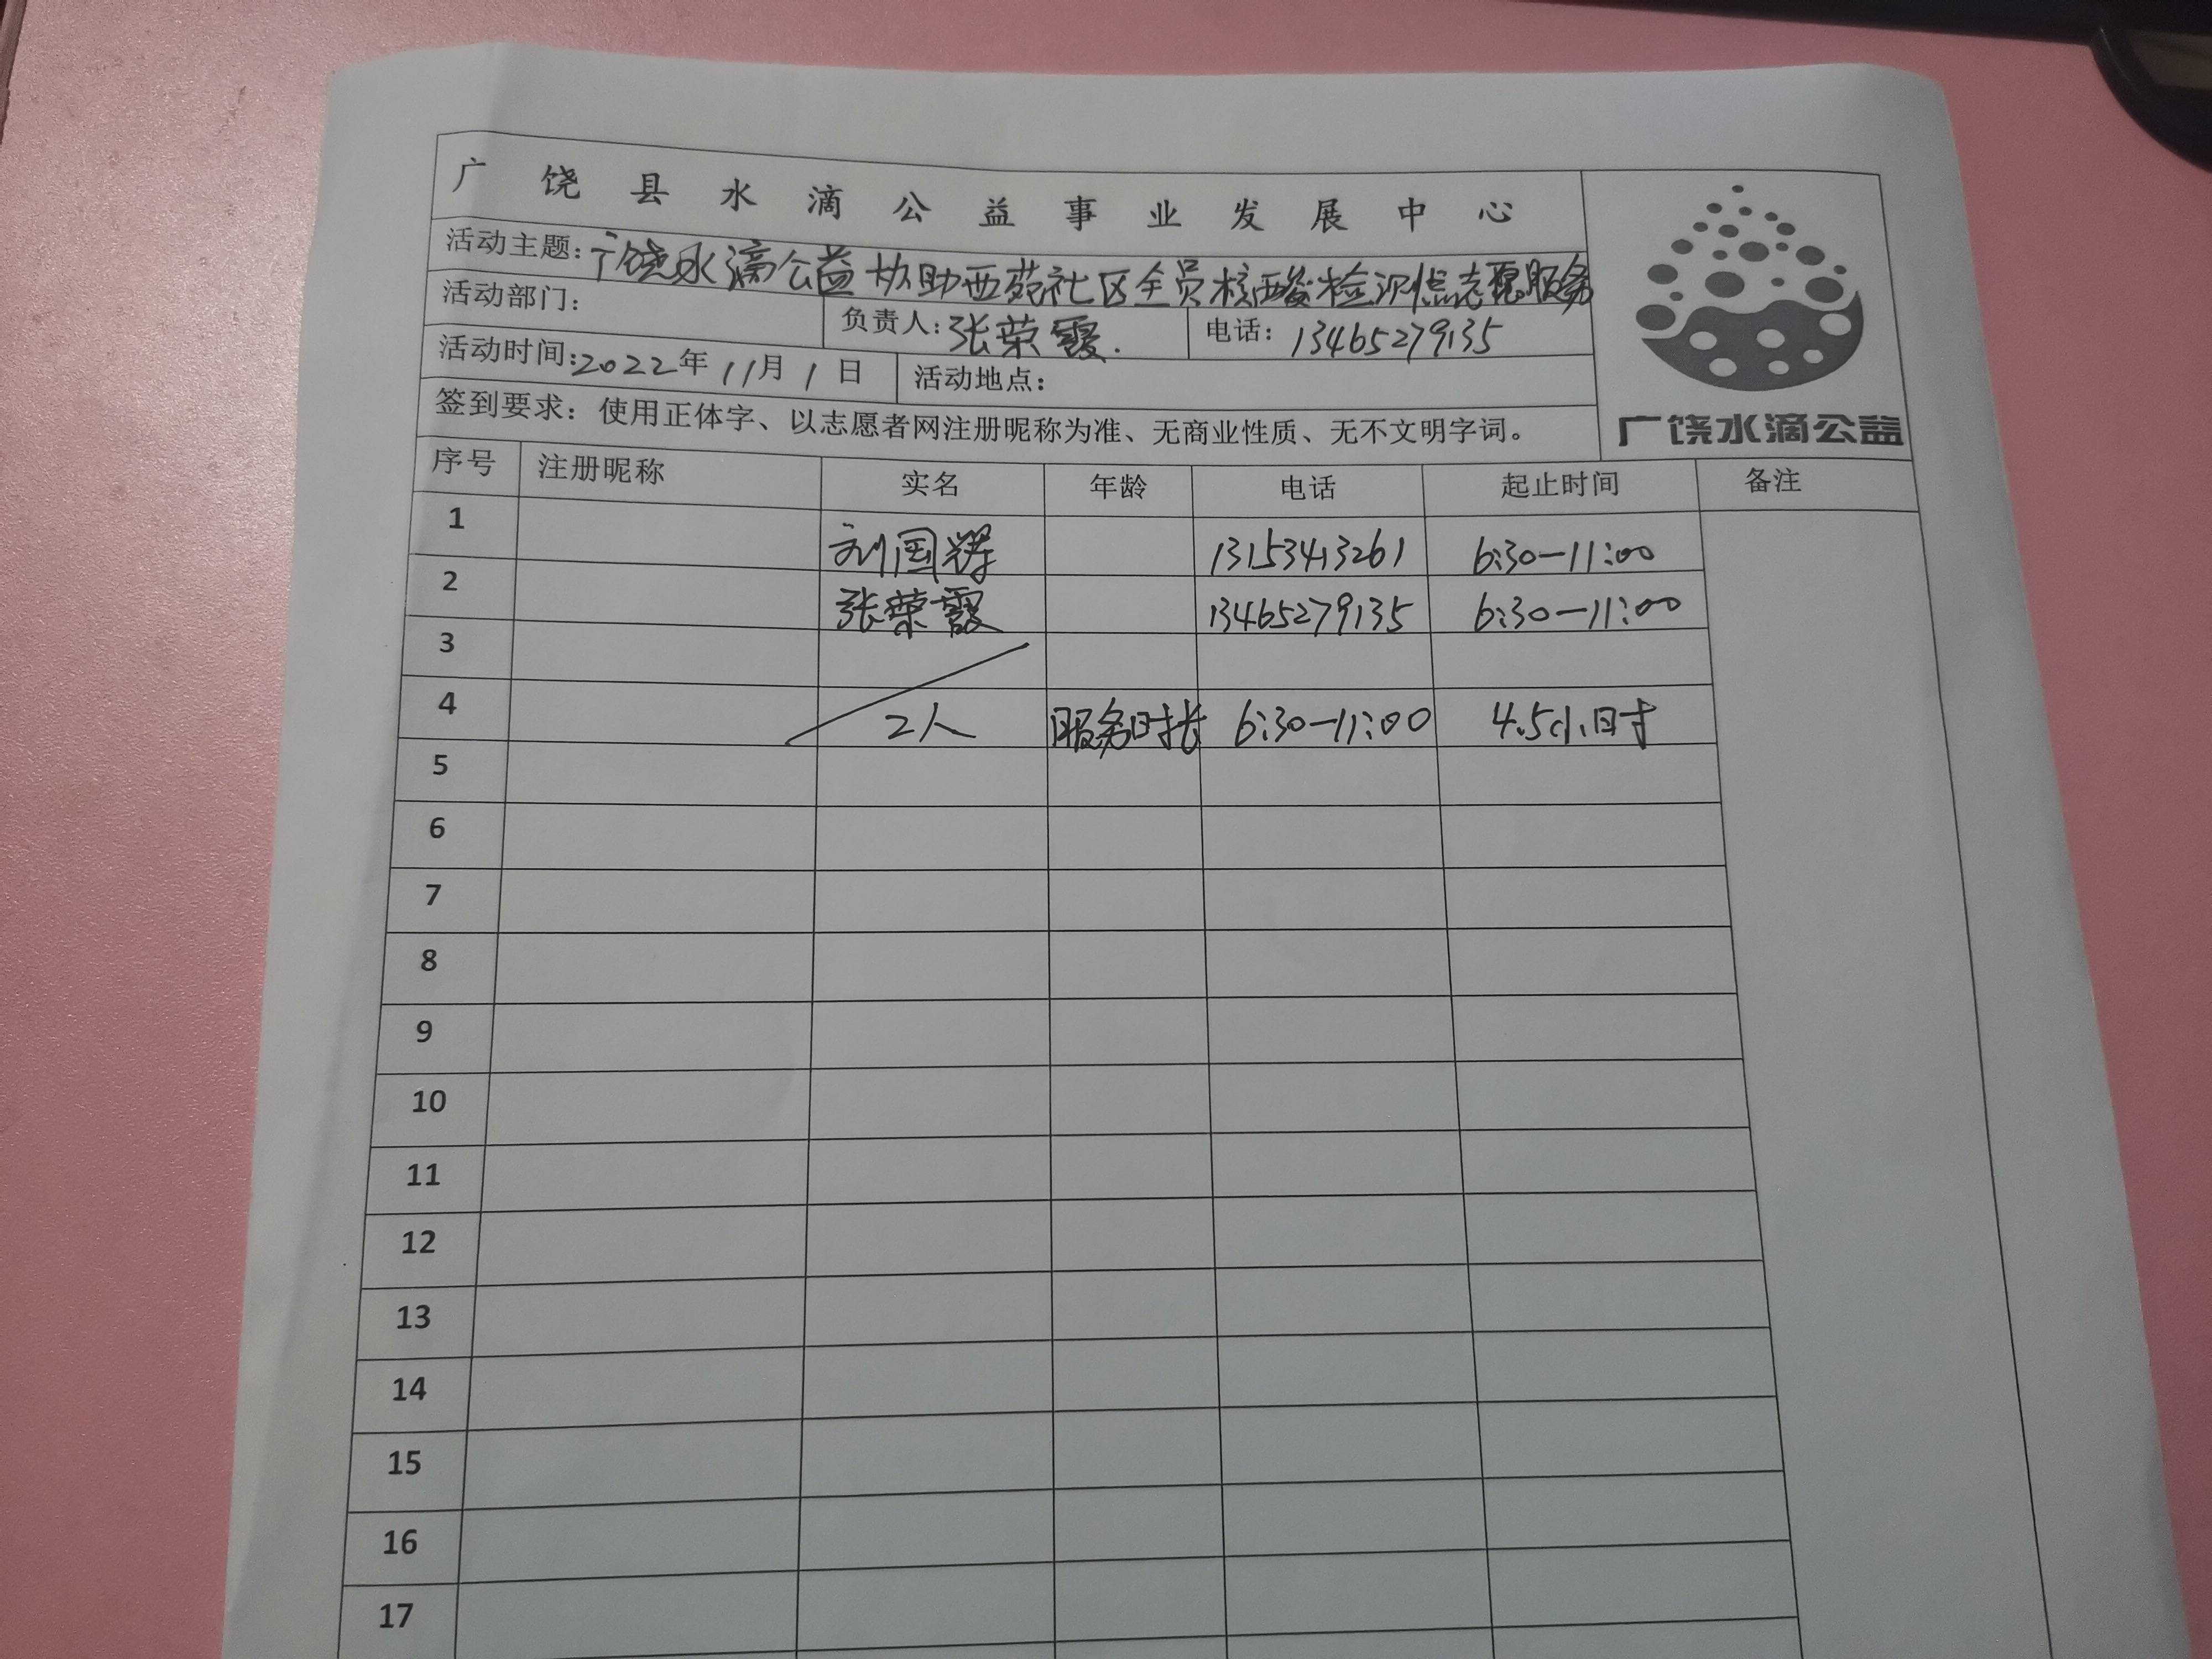 广饶县水滴公益事业发展中心
活动主题：广饶水滴公益协助西苑社区全员核酸检测信息志愿服务
活动部门： 负责人：张荣霞. 电话：13465279135
活动时间：2022年11月1日 活动地点：
签到要求：使用正体字、以志愿者网注册昵称为准、无商业性质、无不文明字词。
广饶水滴公益
序号 注册昵称 实名 年龄 电话 起止时间 备注
1 刘国辉 13153413261 6:30—11:00
2 张荣霞 13465279135 6:30—11:00
3
4 2人 服务时长 6:30—11:00 4.5小时
5
6
7
8
9
10
11
12
13
14
15
16
17